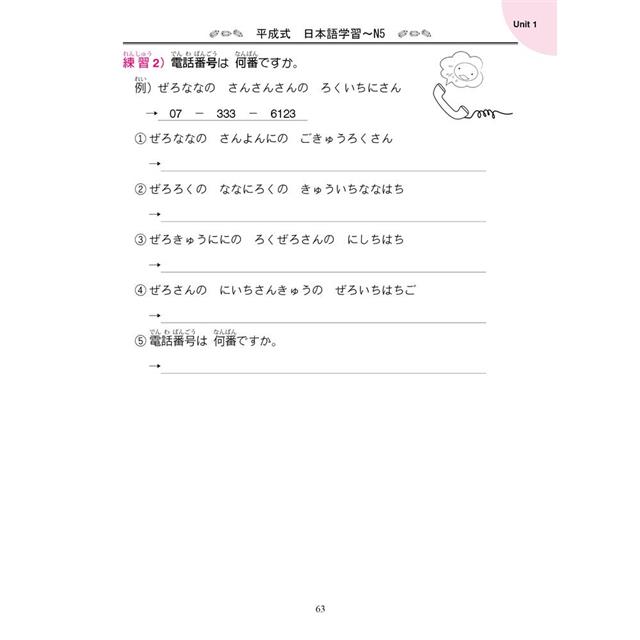 Unit 1
平成式 日本語学習〜N5
れんしゅう でんわばんごう なんばん
練習2）電話番号は 何番ですか。
れい
例）ぜろななの さんさんさんの ろくいちにさん
→ 07 － 333 － 6123
① ぜろななの さんよんにの ごきゅうろくさん
→
② ぜろろくの ななにろくの きゅういちななはち
→
③ ぜろきゅうににの ろくぜろさんの にしちはち
→
④ ぜろさんの にいちさんきゅうの ぜろいちはちご
→
でんわばんごう なんばん
⑤ 電話番号は 何番ですか。
→
63